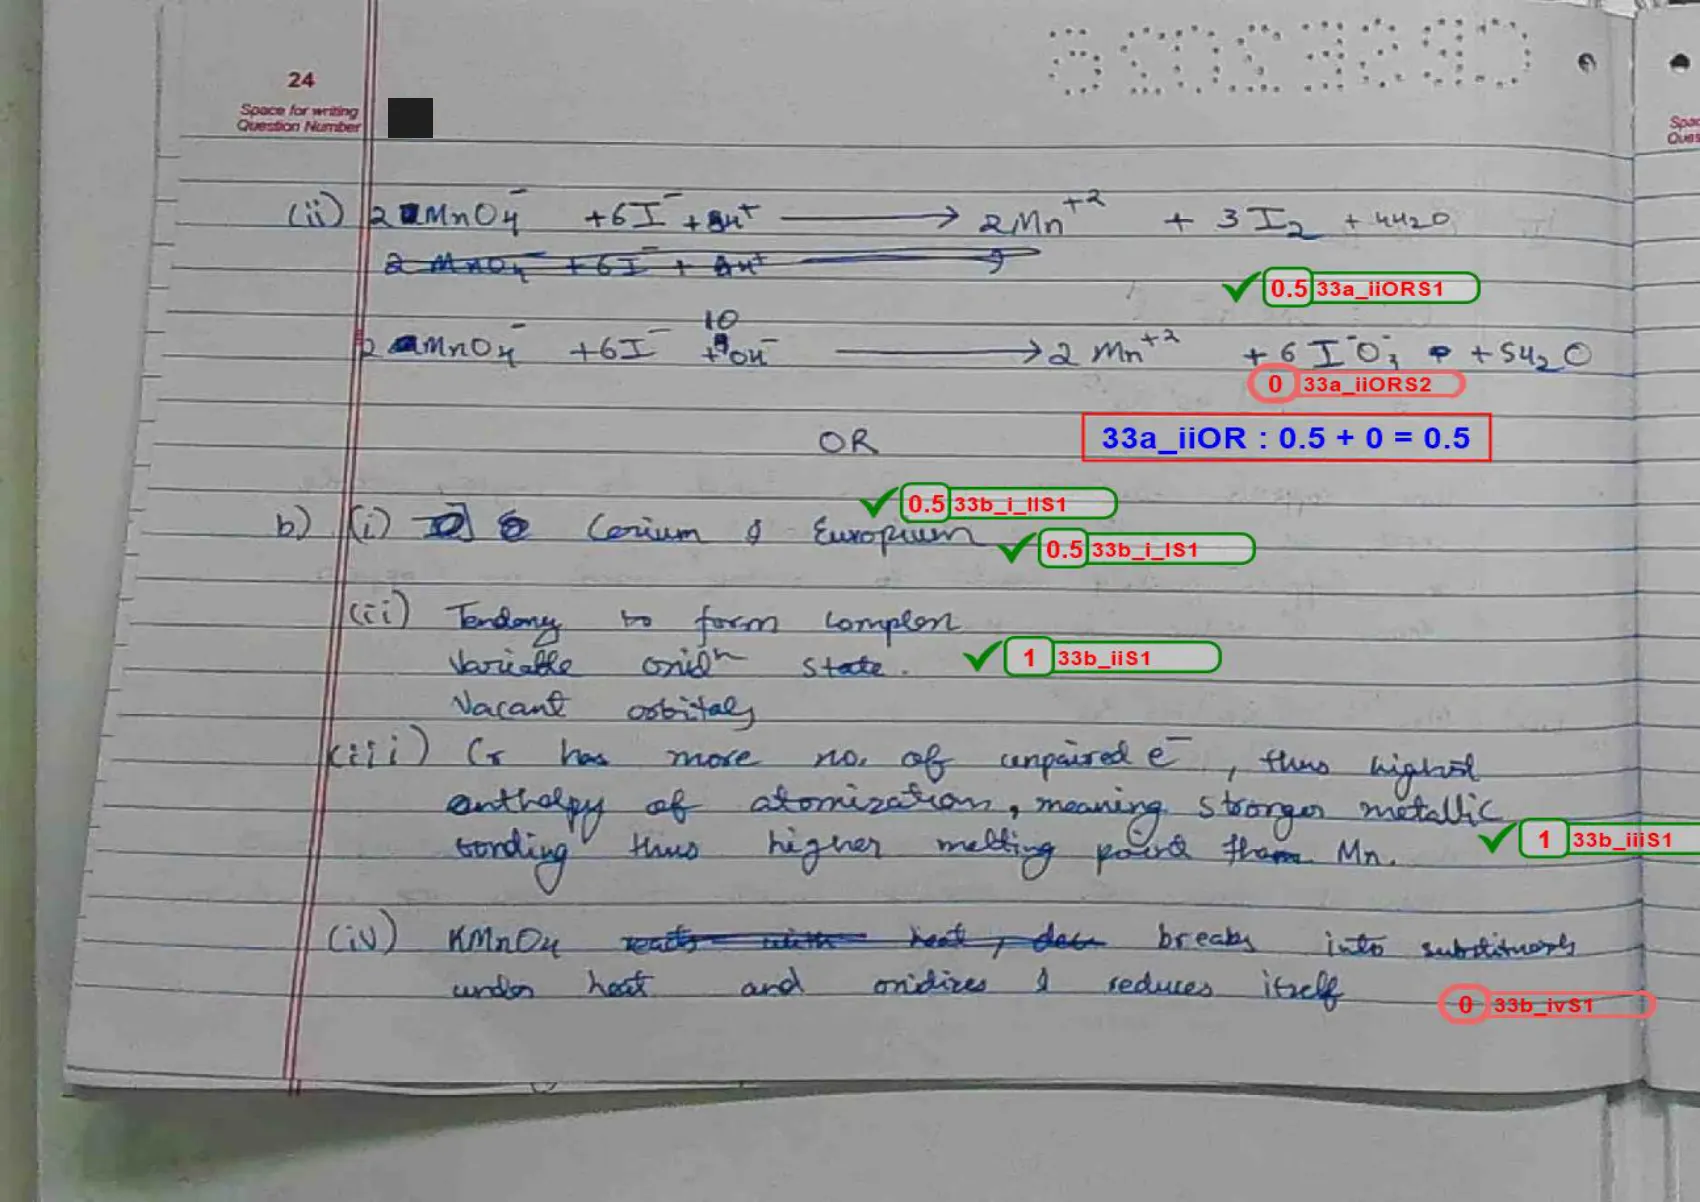 24
Space for writing
Question Number
(ii) 2 MnO4⁻ + 6I⁻ + 8H⁺ ⟶ 2Mn⁺² + 3I2 + 4H2O
2 MnO4⁻ + 6I⁻ + 8H⁺ ⟶
0.5 33a_iiORS1
2 MnO4⁻ + 6I⁻ + 10 OH⁻ ⟶ 2 Mn⁺² + 6 I⁻O⁻3 + 5H2O
0 33a_iiORS2
OR
33a_iiOR : 0.5 + 0 = 0.5
0.5 33b_i_IIS1
b) (i) Cerium & Europium
0.5 33b_i_IS1
(ii) Tendency to form complex
Variable oxidⁿ state.
1 33b_iiS1
Vacant orbitals
(iii) Cr has more no. of unpaired e⁻, thus highest
enthalpy of atomization, meaning stronger metallic
bonding thus higher melting point than Mn.
1 33b_iiiS1
(iv) KMnO4 reacts with heat, breaks into
under heat and oxidizes & reduces itself
0 33b_ivS1
Spac
Ques